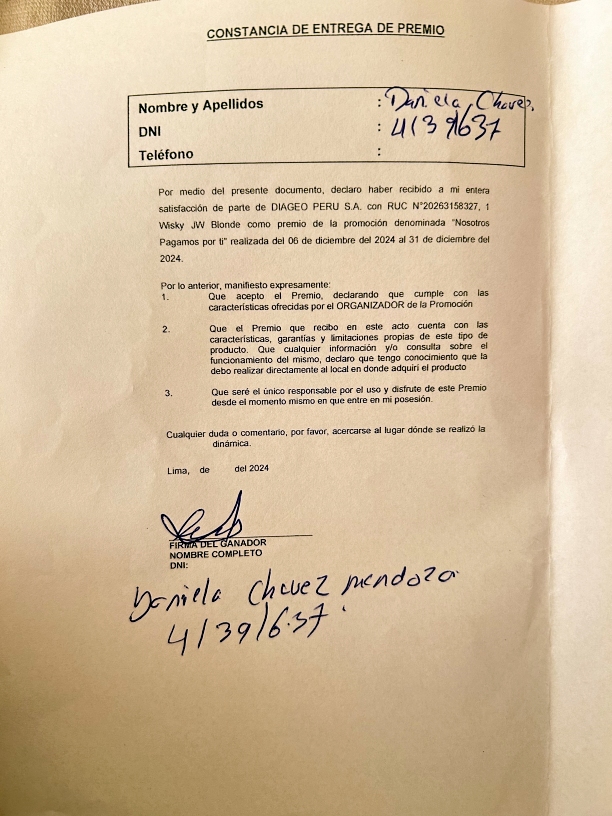 CONSTANCIA DE ENTREGA DE PREMIO
Nombre y Apellidos : Daniela Chavez
DNI : 41391637
Teléfono :
Por medio del presente documento, declaro haber recibido a mi entera
satisfacción de parte de DIAGEO PERU S.A. con RUC N°20263158327, 1
Wisky JW Blonde como premio de la promoción denominada "Nosotros
Pagamos por ti" realizada del 06 de diciembre del 2024 al 31 de diciembre del
2024.
Por lo anterior, manifiesto expresamente:
1. Que acepto el Premio, declarando que cumple con las
características ofrecidas por el ORGANIZADOR de la Promoción
2. Que el Premio que recibo en este acto cuenta con las
características, garantías y limitaciones propias de este tipo de
producto. Que cualquier información y/o consulta sobre el
funcionamiento del mismo, declaro que tengo conocimiento que la
debo realizar directamente al local en donde adquirí el producto
3. Que seré el único responsable por el uso y disfrute de este Premio
desde el momento mismo en que entre en mi posesión.
Cualquier duda o comentario, por favor, acercarse al lugar dónde se realizó la
dinámica.
Lima, de del 2024
FIRMA DEL GANADOR
NOMBRE COMPLETO
DNI:
Daniela Chavez Mendoza
41391637